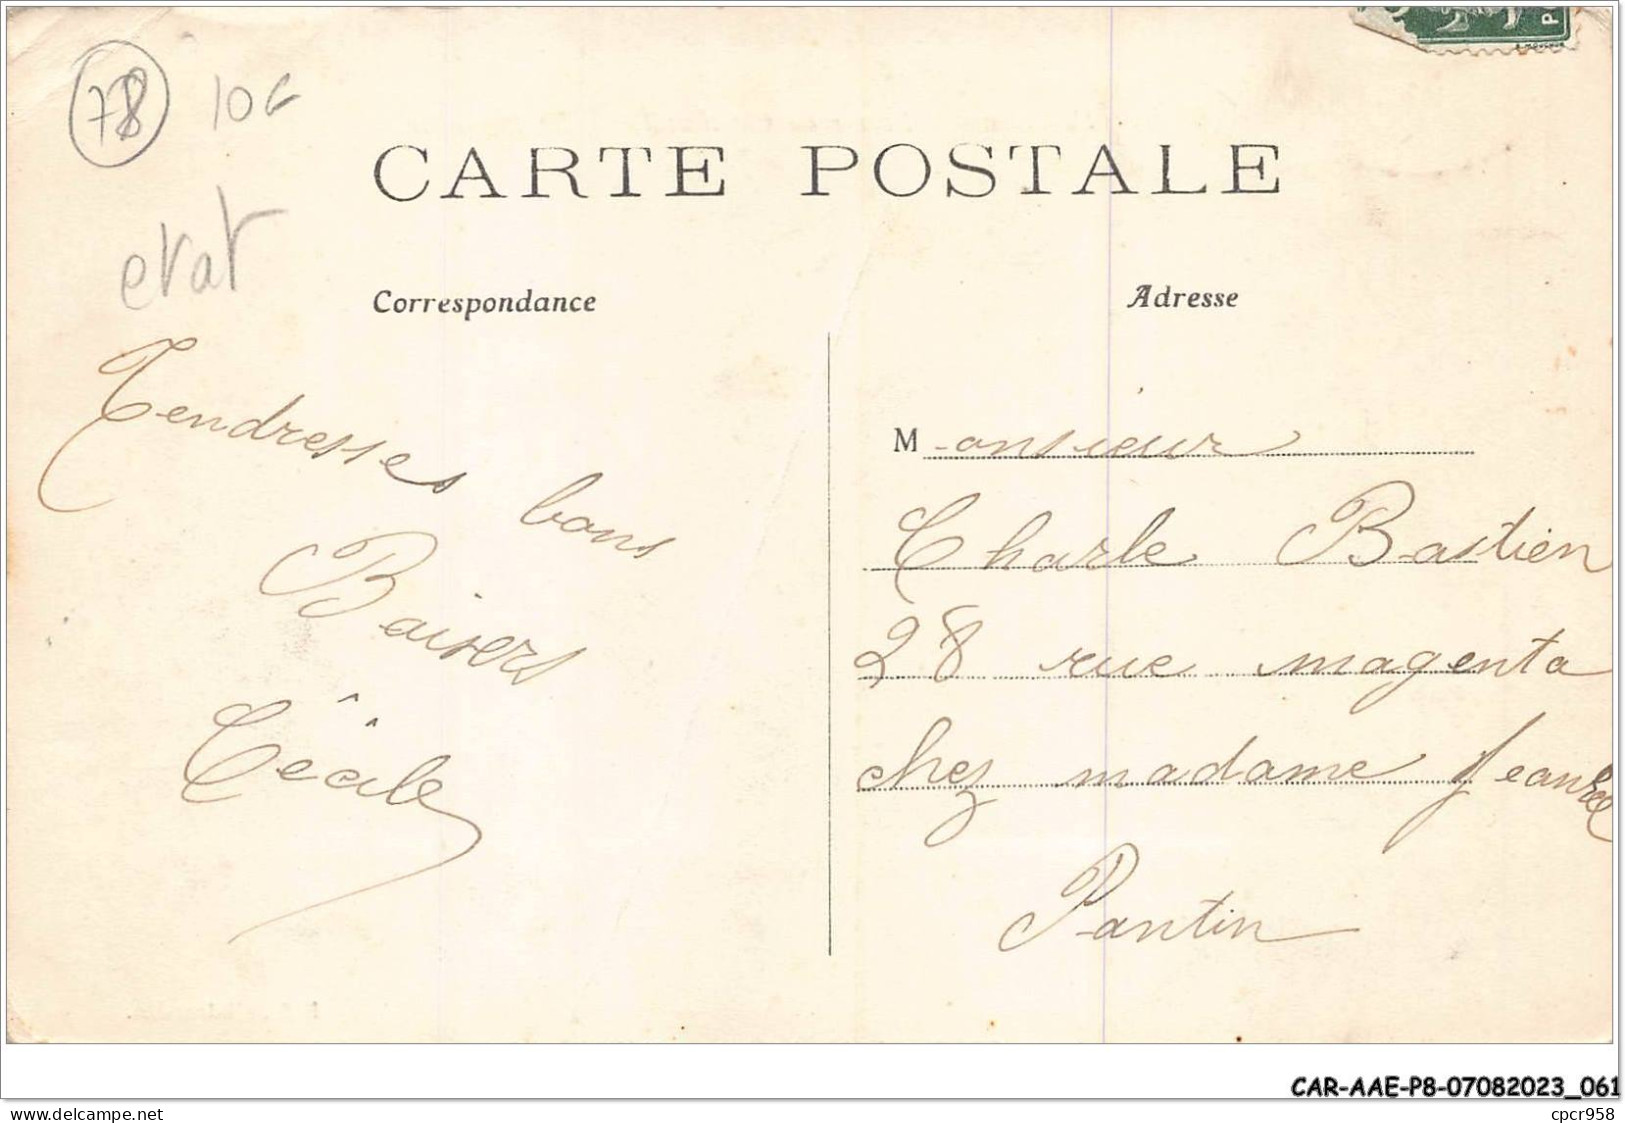 78
10€
etat
CARTE POSTALE
Correspondance
Adresse
Tendresses bons
Baisers
Cécile
Monsieur
Charle Bastien
28 rue magenta
chez madame
Pantin
CAR-AAE-P8-07082023_061
www.delcampe.net
cpcr958